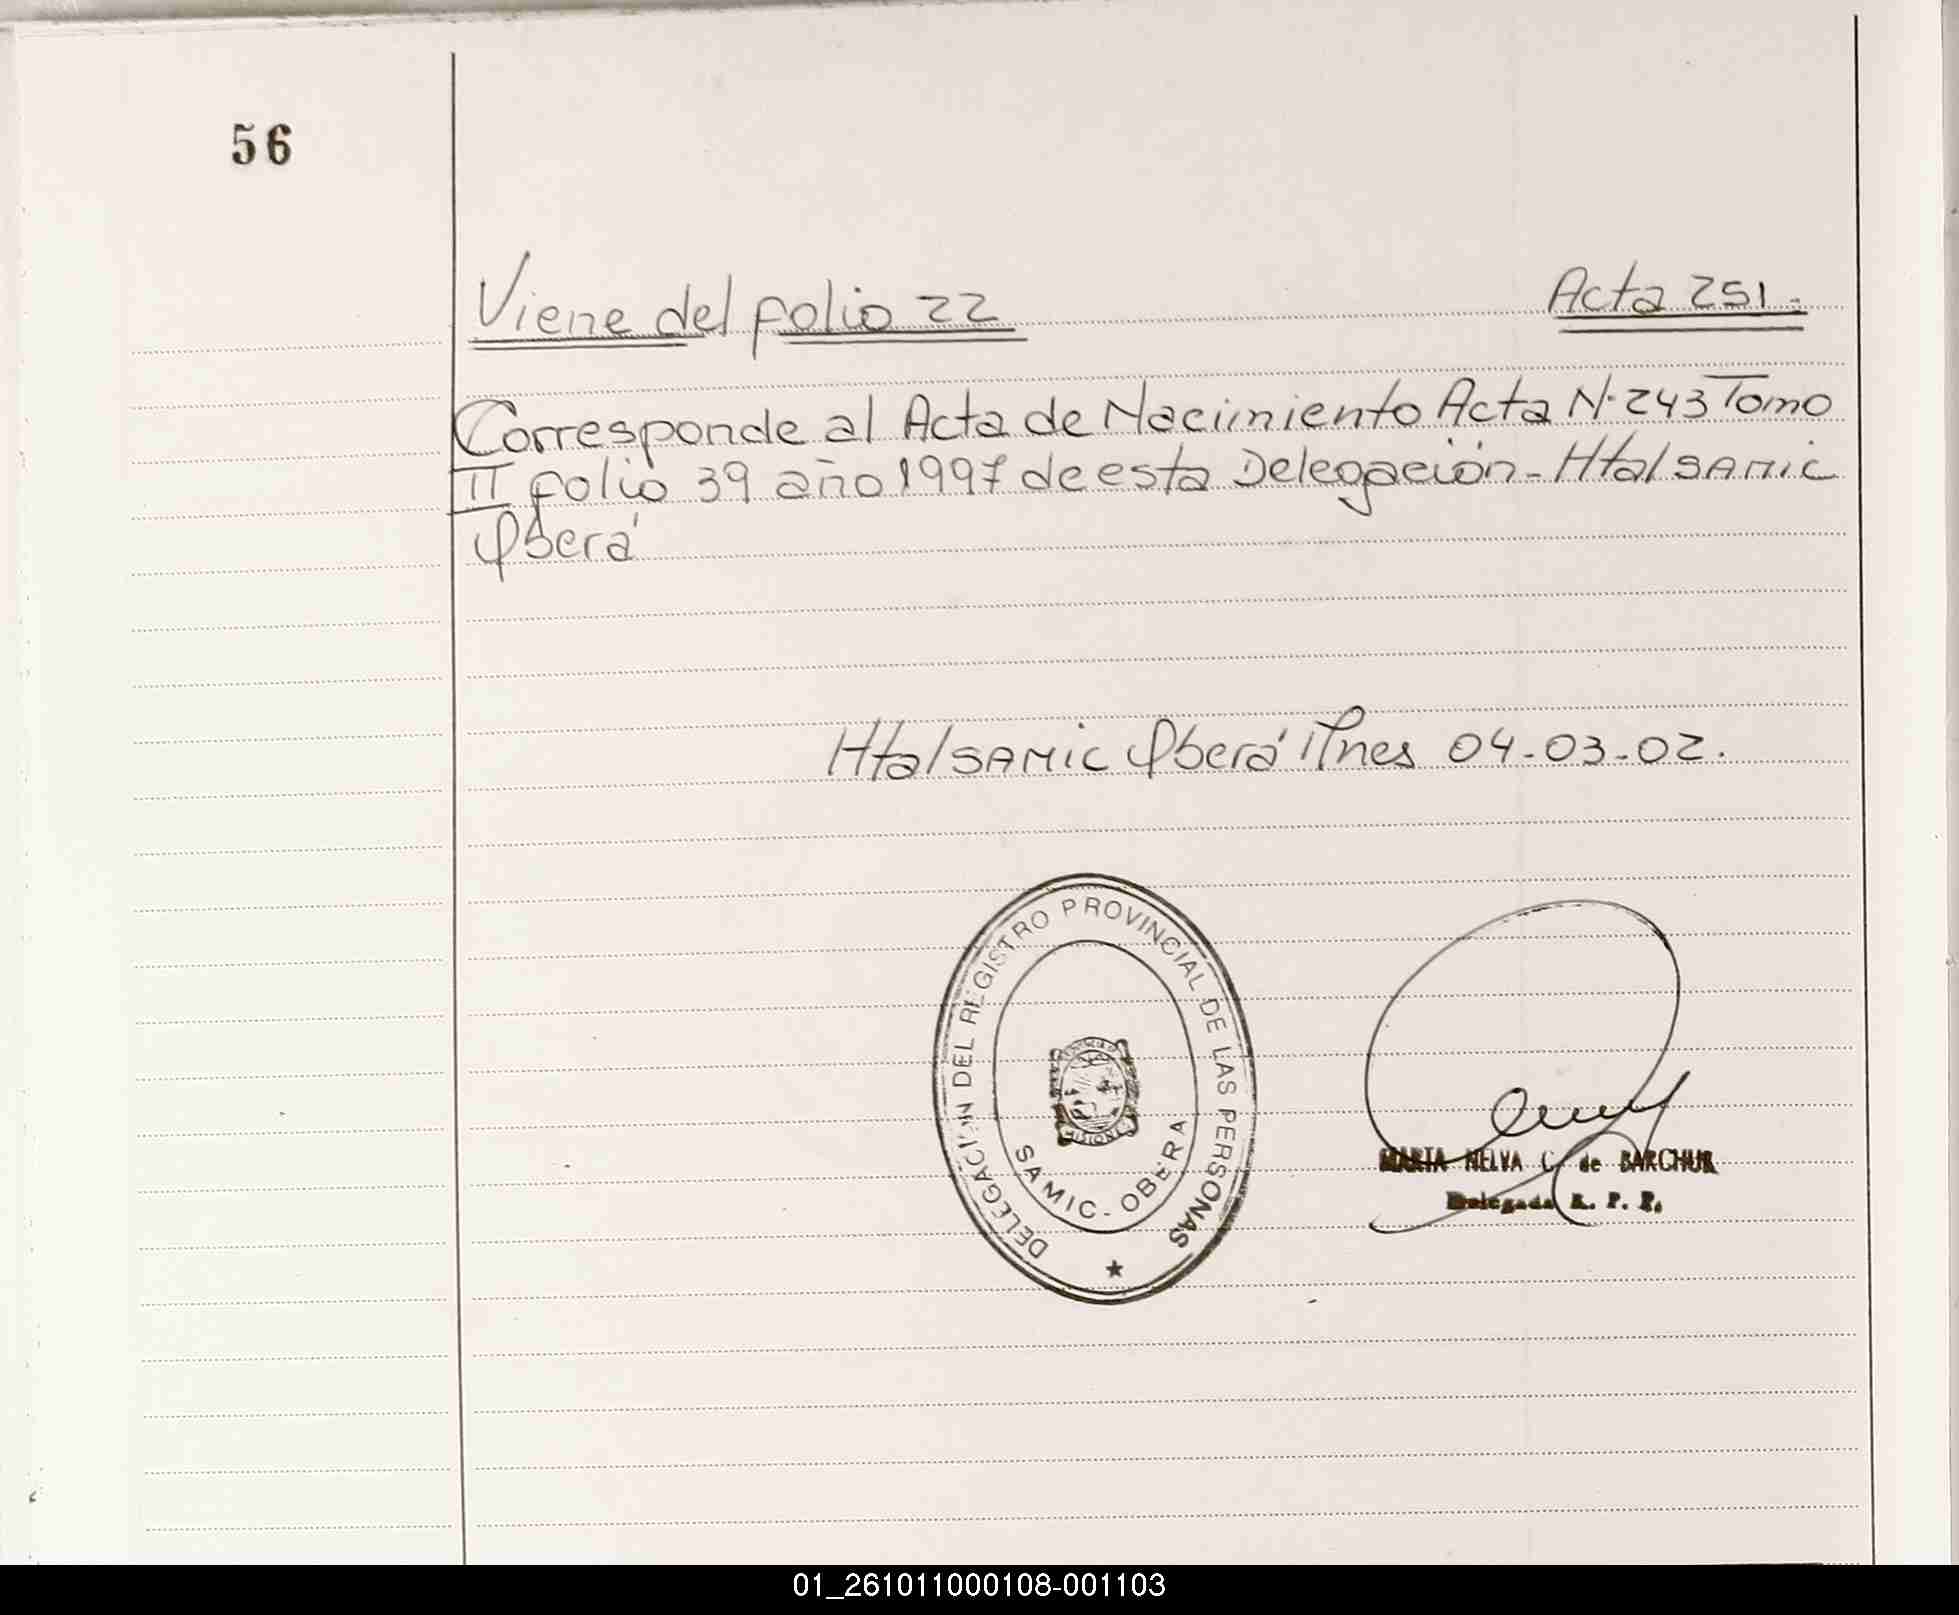 56
Viene del folio 22
Acta 251.-
Corresponde al Acta de Nacimiento Acta N. 243 Tomo
II folio 39 año 1997 de esta Delegación - Htal SAMIC
Oberá
Htal SAMIC Oberá Mnes 04-03-02.
DELEGACION DEL REGISTRO PROVINCIAL DE LAS PERSONAS
SAMIC - OBERA
MISIONES
MARTA NELVA C. de BARCHUK
Delegada R. P. P.
01_261011000108-001103